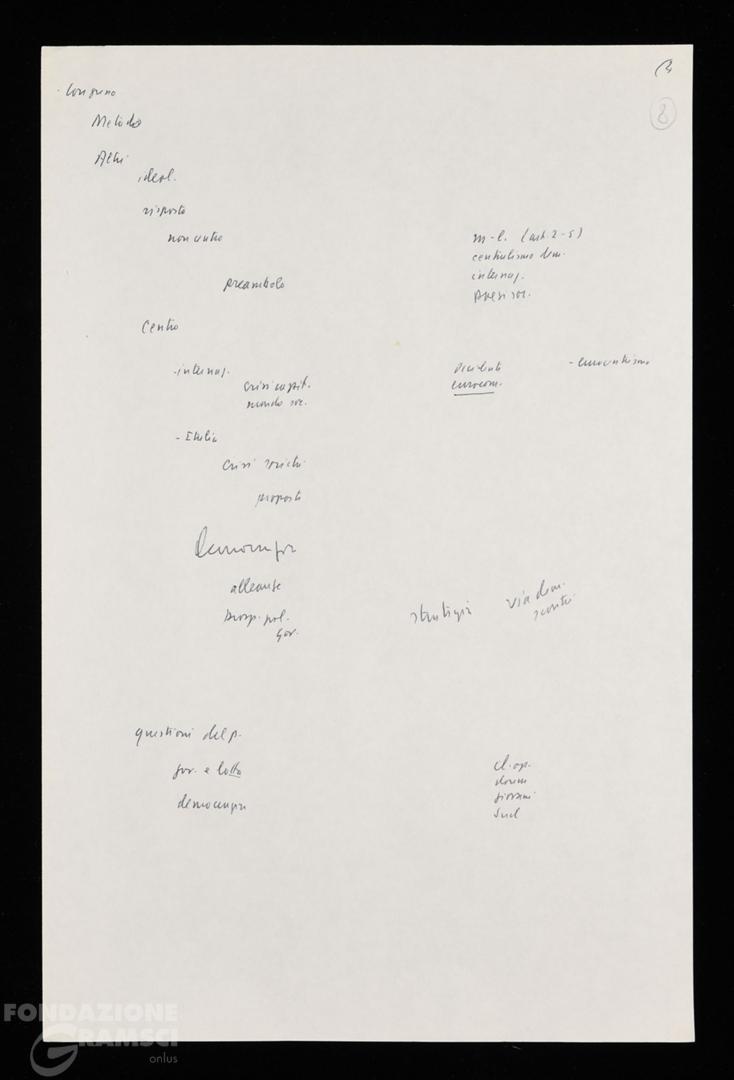 B
8
- Congresso
Metodo
Altri
ideol.
risposte
non entro
m-l. (art. 2-5)
centralismo dem.
internaz.
Paesi soc.
preambolo
Centro
- internaz.
crisi capit.
mondo soc.
Occidente
eurocom.
- Italia
crisi
proposte
Democrazia
alleanze
gov.
strategia
via dem.
questioni del p.
gov. e lotta
democrazia
cl. op.
donne
giovani
Sud
FONDAZIONE
GRAMSCI
onlus